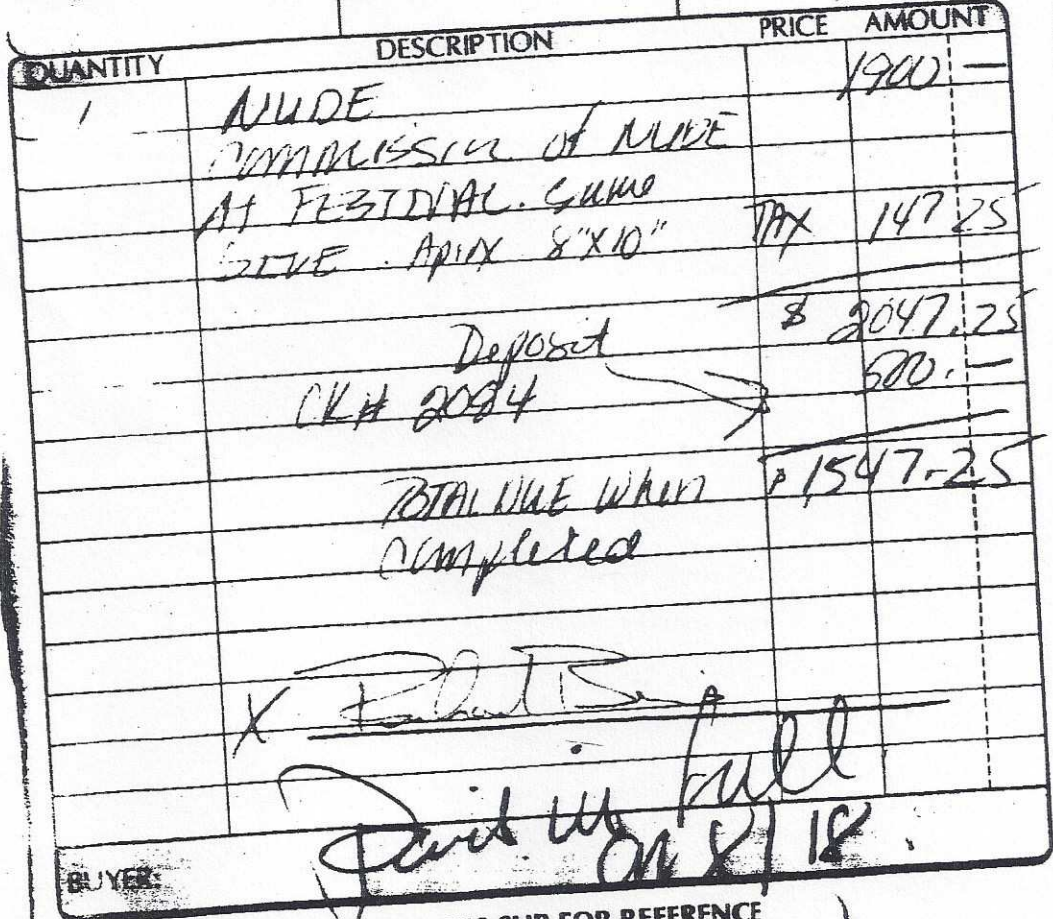 QUANTITY DESCRIPTION PRICE AMOUNT
1 NUDE 1900 —
COMMISSION of NUDE
At FESTIVAL. Same
SIZE. Aprox 8"X10" TAX 147 25
$ 2047.25
Deposit 500.—
CK# 2084
TOTAL DUE When $1547.25
completed
X
Paid in full
on 8/18.
BUYER:
SLIP FOR REFERENCE